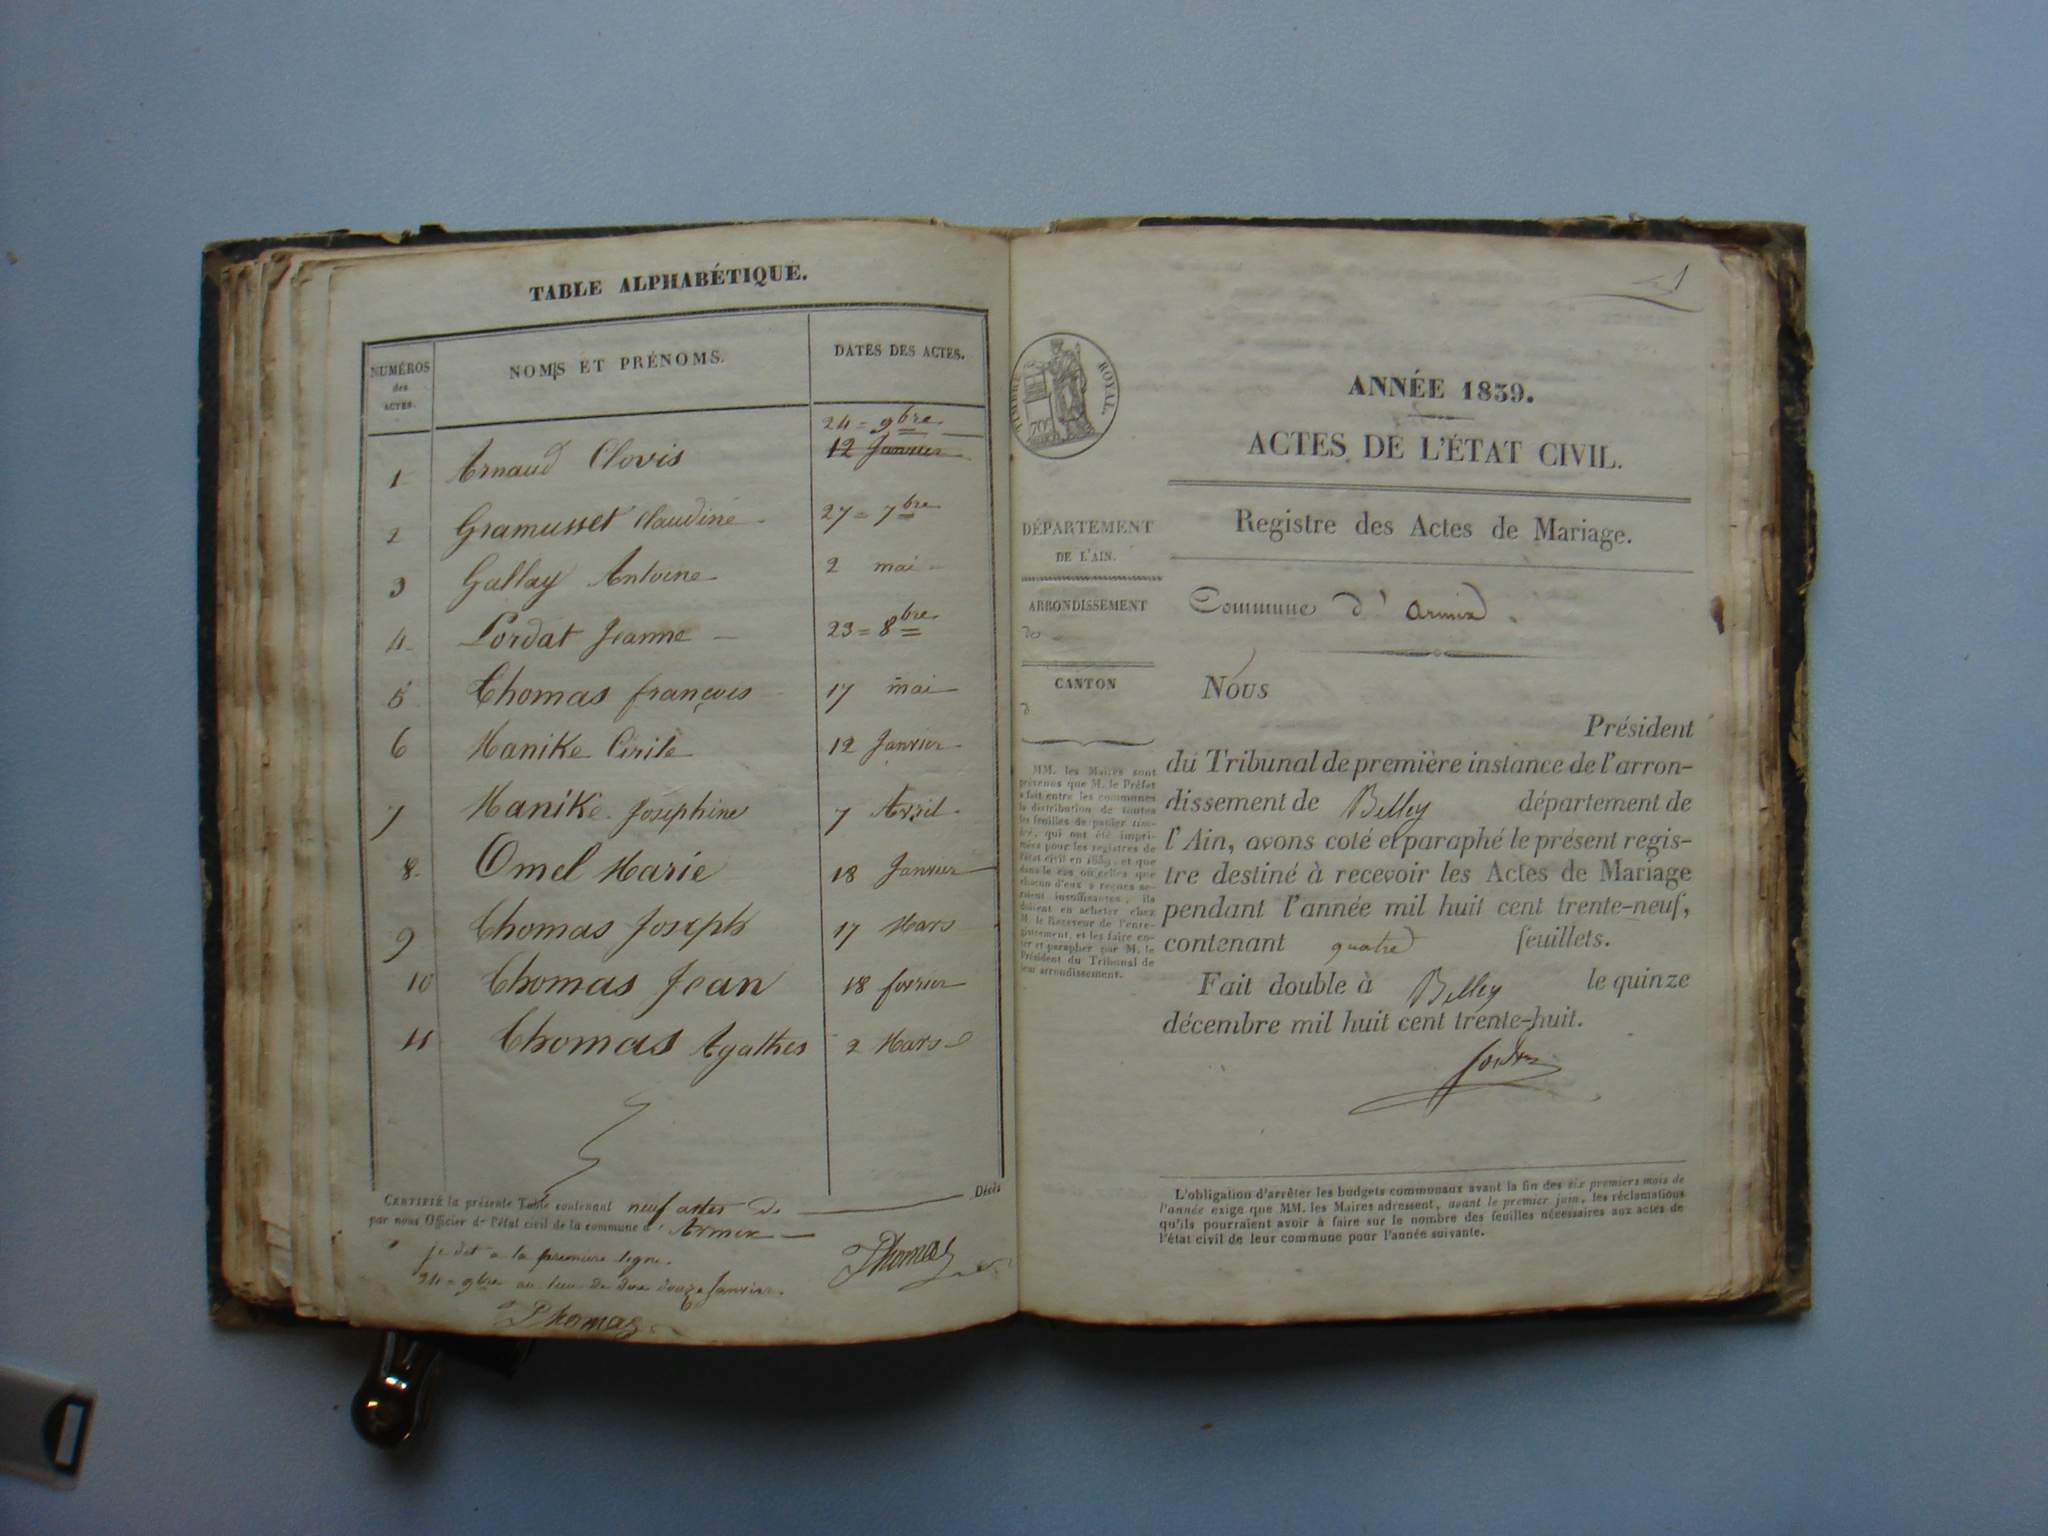 TABLE ALPHABÉTIQUE.
NUMÉROS des ACTES. NOMS ET PRÉNOMS. DATES DES ACTES.
24 = 9bre
1 Arnaud Clovis 12 Janvier
2 Gramusset Claudine 27 = 7bre
3 Gallay Antoine 2 mai
4 Lordat Jeanne 23 = 8bre
5 Thomas françois 17 mai
6 Manike Cirile 12 Janvier
7 Manike Josephine 7 Avril
8 Omel Marie 18 Janvier
9 Thomas Joseph 17 Mars
10 Thomas Jean 18 fevrier
11 Thomas Agathes 2 Mars
CERTIFIÉ la présente Table contenant neuf actes de Décès
par nous Officier de l'état civil de la commune d' Armix
je dit a la premiere ligne.
24 = 9bre au lieu de douze Janvier.
Thomas
Thomas
1
TIMBRE ROYAL.
ANNÉE 1839.
ACTES DE L'ÉTAT CIVIL.
DÉPARTEMENT
DE L'AIN.
ARRONDISSEMENT
de
CANTON
d
MM. les Maires sont
prévenus que M. le Préfet
a fait entre les communes
la distribution de toutes
les feuilles de papier tim-
bré, qui ont été impri-
mées pour les registres de
l'état civil en 1839, et que
dans le cas où celles que
chacun d'eux a reçues se-
raient insuffisantes, ils
doivent en acheter chez
M. le Receveur de l'enre-
gistrement, et les faire co-
ter et parapher par M. le
Président du Tribunal de
leur arrondissement.
Registre des Actes de Mariage.
Commune d' armix
Nous
Président
du Tribunal de première instance de l'arron-
dissement de Belley département de
l'Ain, avons coté et paraphé le présent regis-
tre destiné à recevoir les Actes de Mariage
pendant l'année mil huit cent trente-neuf,
contenant quatre feuillets.
Fait double à Belley le quinze
décembre mil huit cent trente-huit.
L'obligation d'arrêter les budgets communaux avant la fin des six premiers mois de
l'année exige que MM. les Maires adressent, avant le premier juin, les réclamations
qu'ils pourraient avoir à faire sur le nombre des feuilles nécessaires aux actes de
l'état civil de leur commune pour l'année suivante.